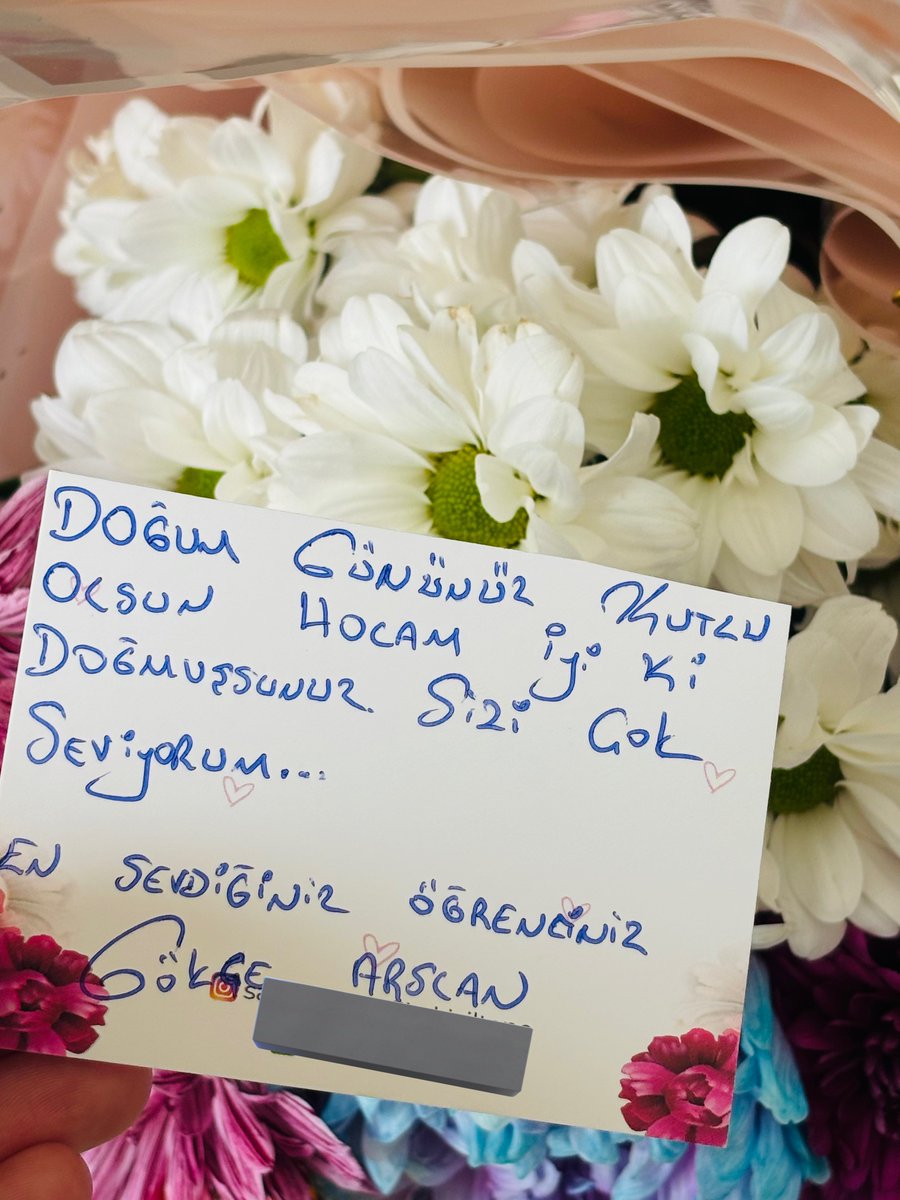 DOĞUM GÜNÜNÜZ KUTLU
OLSUN HOCAM İYİ Kİ
DOĞMUŞSUNUZ. SİZİ ÇOK
SEVİYORUM...
EN SEVDİĞİNİZ ÖĞRENCİNİZ
GÖKÇE ARSLAN